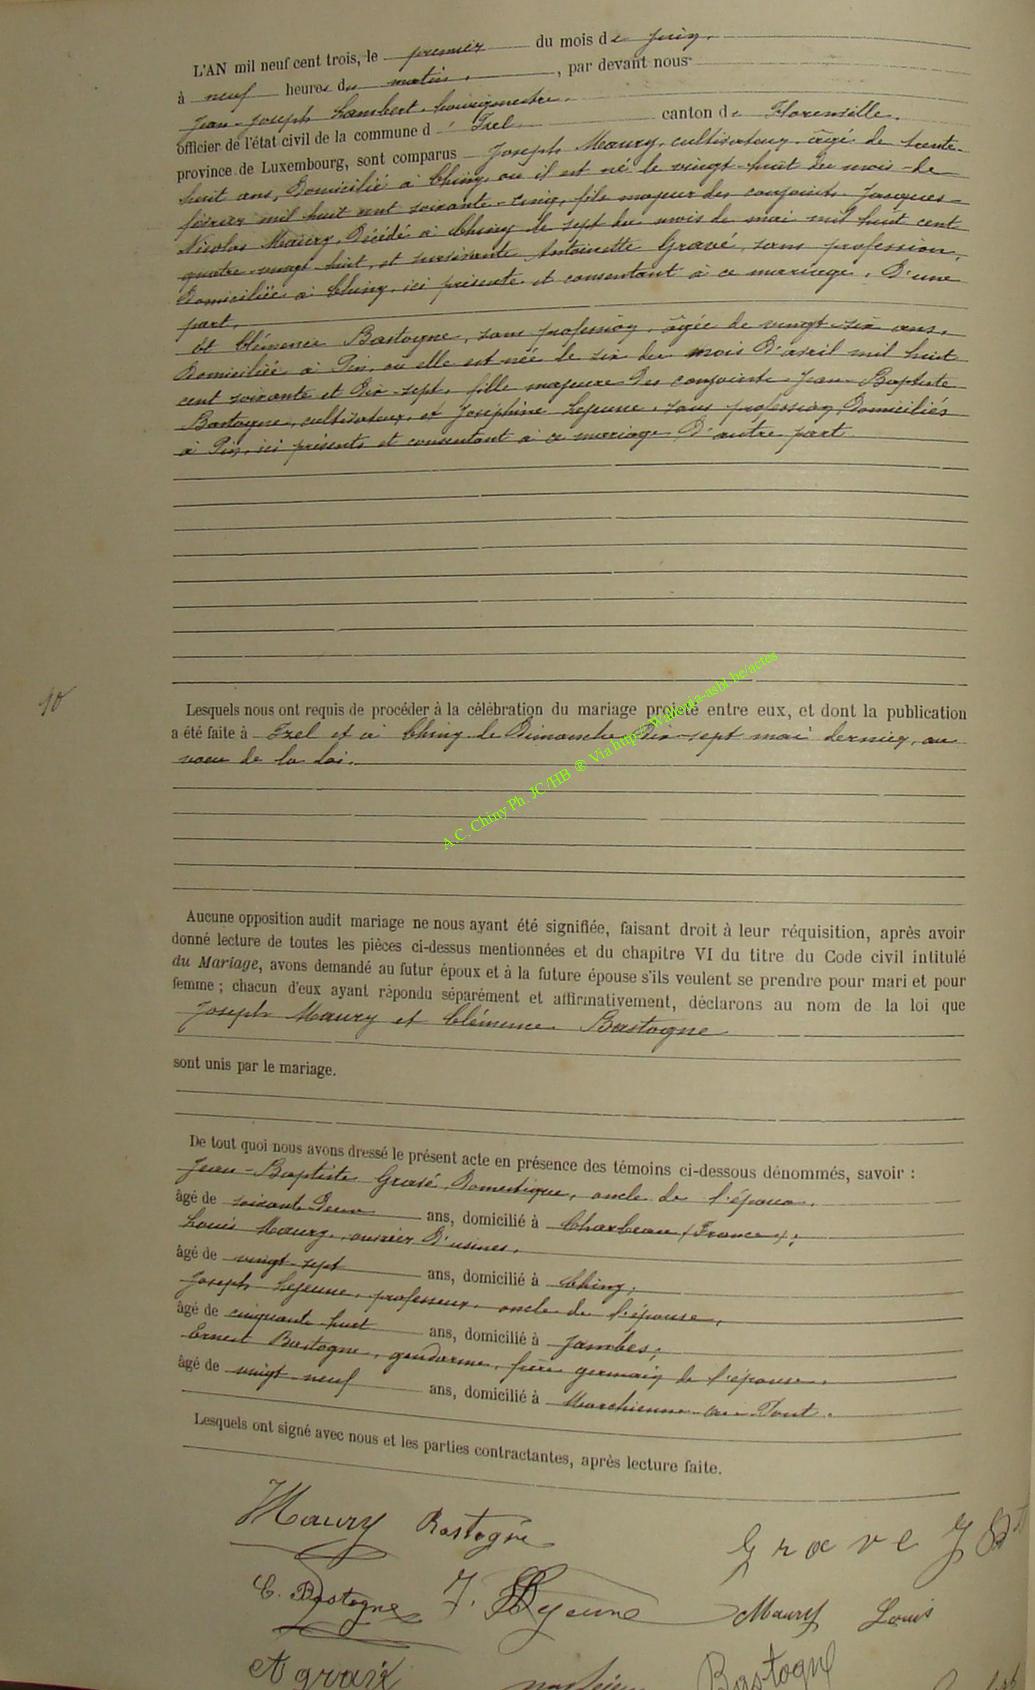 L'AN mil neuf cent trois, le premier du mois de juin.
à neuf heures du matin, par devant nous
Jean-Joseph Lambert, bourgmestre.
officier de l'état civil de la commune d'Izel canton de Florenville.
province de Luxembourg, sont comparus Joseph Maury, cultivateur, âgé de trente-
huit ans, domicilié à Chiny où il est né le vingt-huit du mois de
février mil huit cent soixante-cinq, fils majeur des conjoints Jacques-
Nicolas Maury, décédé à Chiny le sept du mois de mai mil huit cent
quatre-vingt-huit, et survivante Antoinette Gravé, sans profession,
domiciliée à Chiny, ici présente et consentant à ce mariage, d'une
part.
Et Clémence Bastogne, sans profession, âgée de vingt-six ans,
domiciliée à Pin, où elle est née le six du mois d'avril mil huit
cent soixante et dix-sept, fille majeure des conjoints Jean-Baptiste
Bastogne, cultivateur, et Joséphine Lejeune, sans profession, domiciliés
à Pin, ici présents et consentant à ce mariage d'autre part.
10
Lesquels nous ont requis de procéder à la célébration du mariage projeté entre eux, et dont la publication
a été faite à Izel et à Chiny le Dimanche dix-sept mai dernier, au
voeu de la loi.
A.C. Chiny Ph. JC/HB ® Via http://Wallonia-asbl.be/actes
Aucune opposition audit mariage ne nous ayant été signifiée, faisant droit à leur réquisition, après avoir
donné lecture de toutes les pièces ci-dessus mentionnées et du chapitre VI du titre du Code civil intitulé
du Mariage, avons demandé au futur époux et à la future épouse s'ils veulent se prendre pour mari et pour
femme ; chacun d'eux ayant répondu séparément et affirmativement, déclarons au nom de la loi que
Joseph Maury et Clémence Bastogne
sont unis par le mariage.
De tout quoi nous avons dressé le présent acte en présence des témoins ci-dessous dénommés, savoir :
Jean-Baptiste Gravé, domestique, oncle de l'époux,
âgé de soixante deux ans, domicilié à Charbeau (France);
Louis Maury, ouvrier d'usines,
âgé de vingt-sept ans, domicilié à Chiny;
Joseph Lejeune, professeur, oncle de l'épouse,
âgé de cinquante huit ans, domicilié à Jambes;
Ernest Bastogne, gendarme, frère germain de l'épouse,
âgé de vingt neuf ans, domicilié à Marchienne-au-Pont.
Lesquels ont signé avec nous et les parties contractantes, après lecture faite.
Maury Bastogne Grave J Bte
C. Bastogne J. Lejeune Maury Louis
A gravé Bastogne